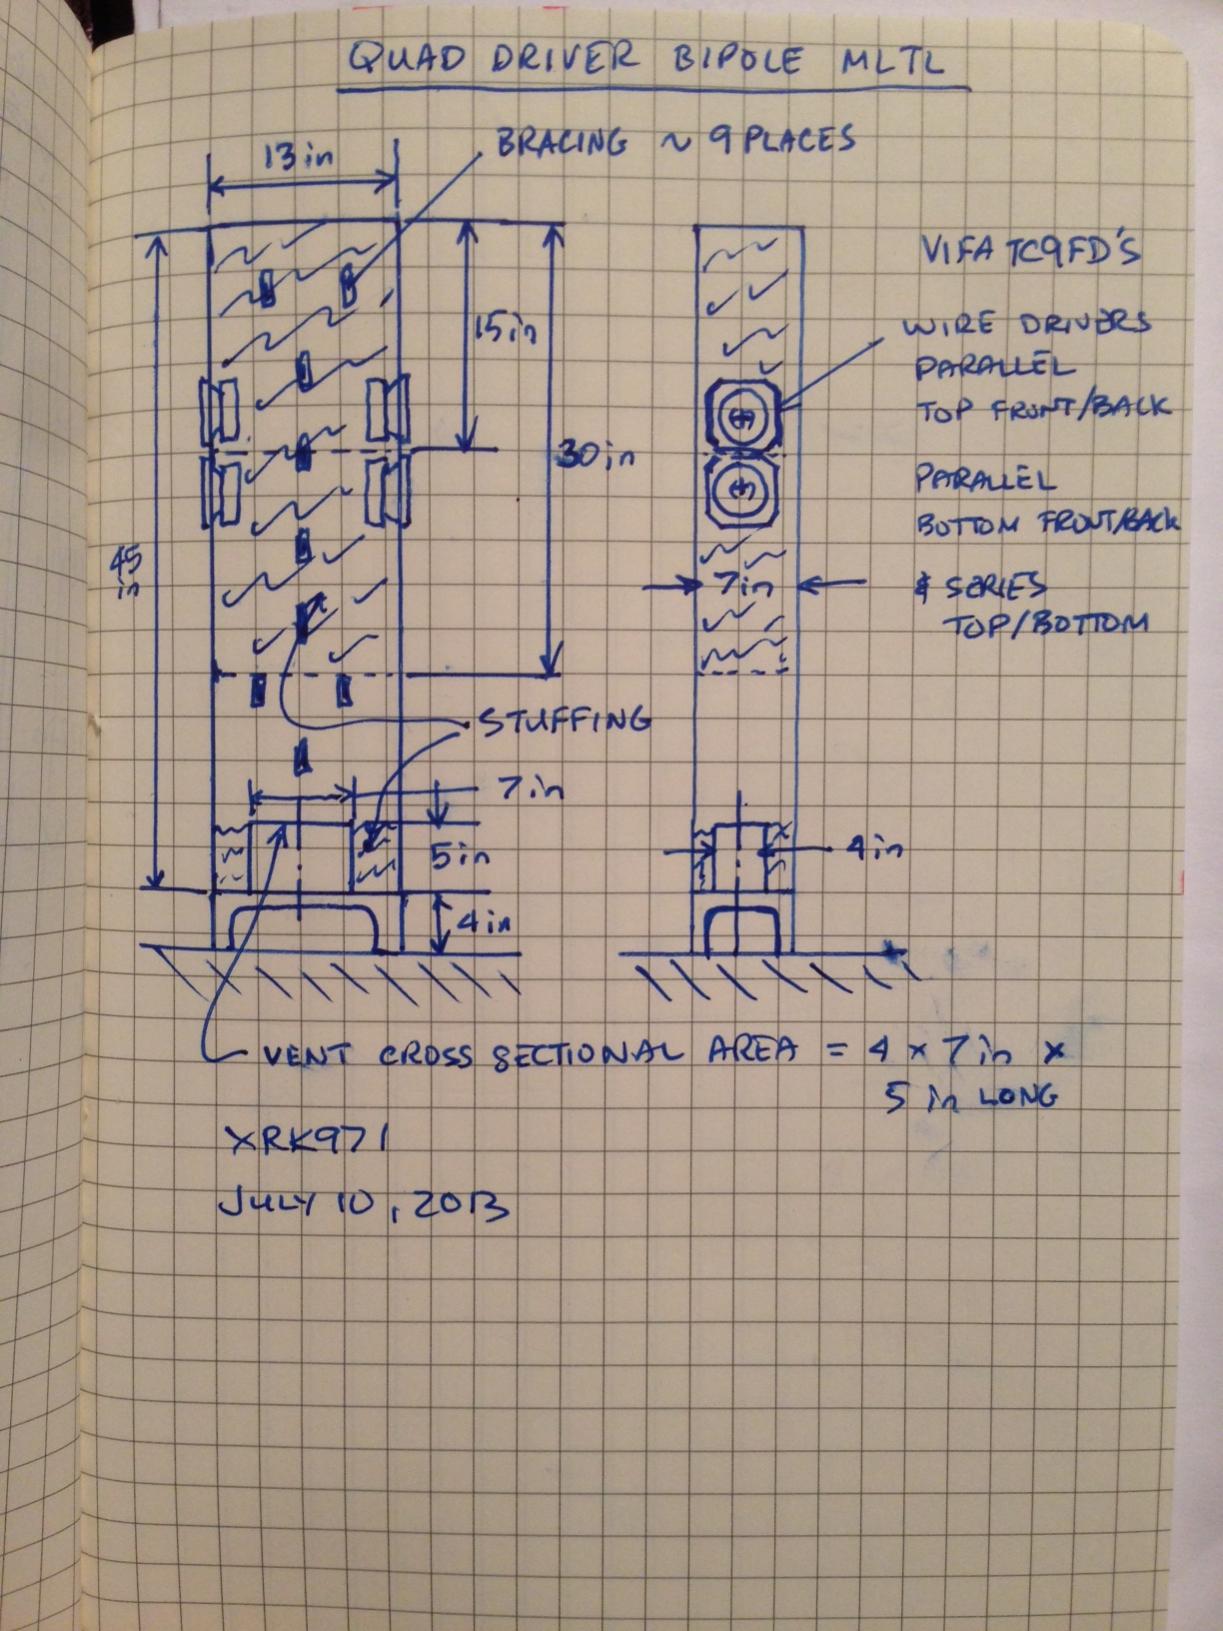 QUAD DRIVER BIPOLE MLTL
BRACING ~ 9 PLACES
13 in
15 in
30 in
45
in
VIFA TC9FD'S
WIRE DRIVERS
PARALLEL
TOP FRONT/BACK
PARALLEL
BOTTOM FRONT/BACK
& SERIES
TOP/BOTTOM
7 in
STUFFING
7 in
5 in
4 in
4 in
VENT CROSS SECTIONAL AREA = 4 x 7 in x
5 in LONG
XRK971
JULY 10, 2013